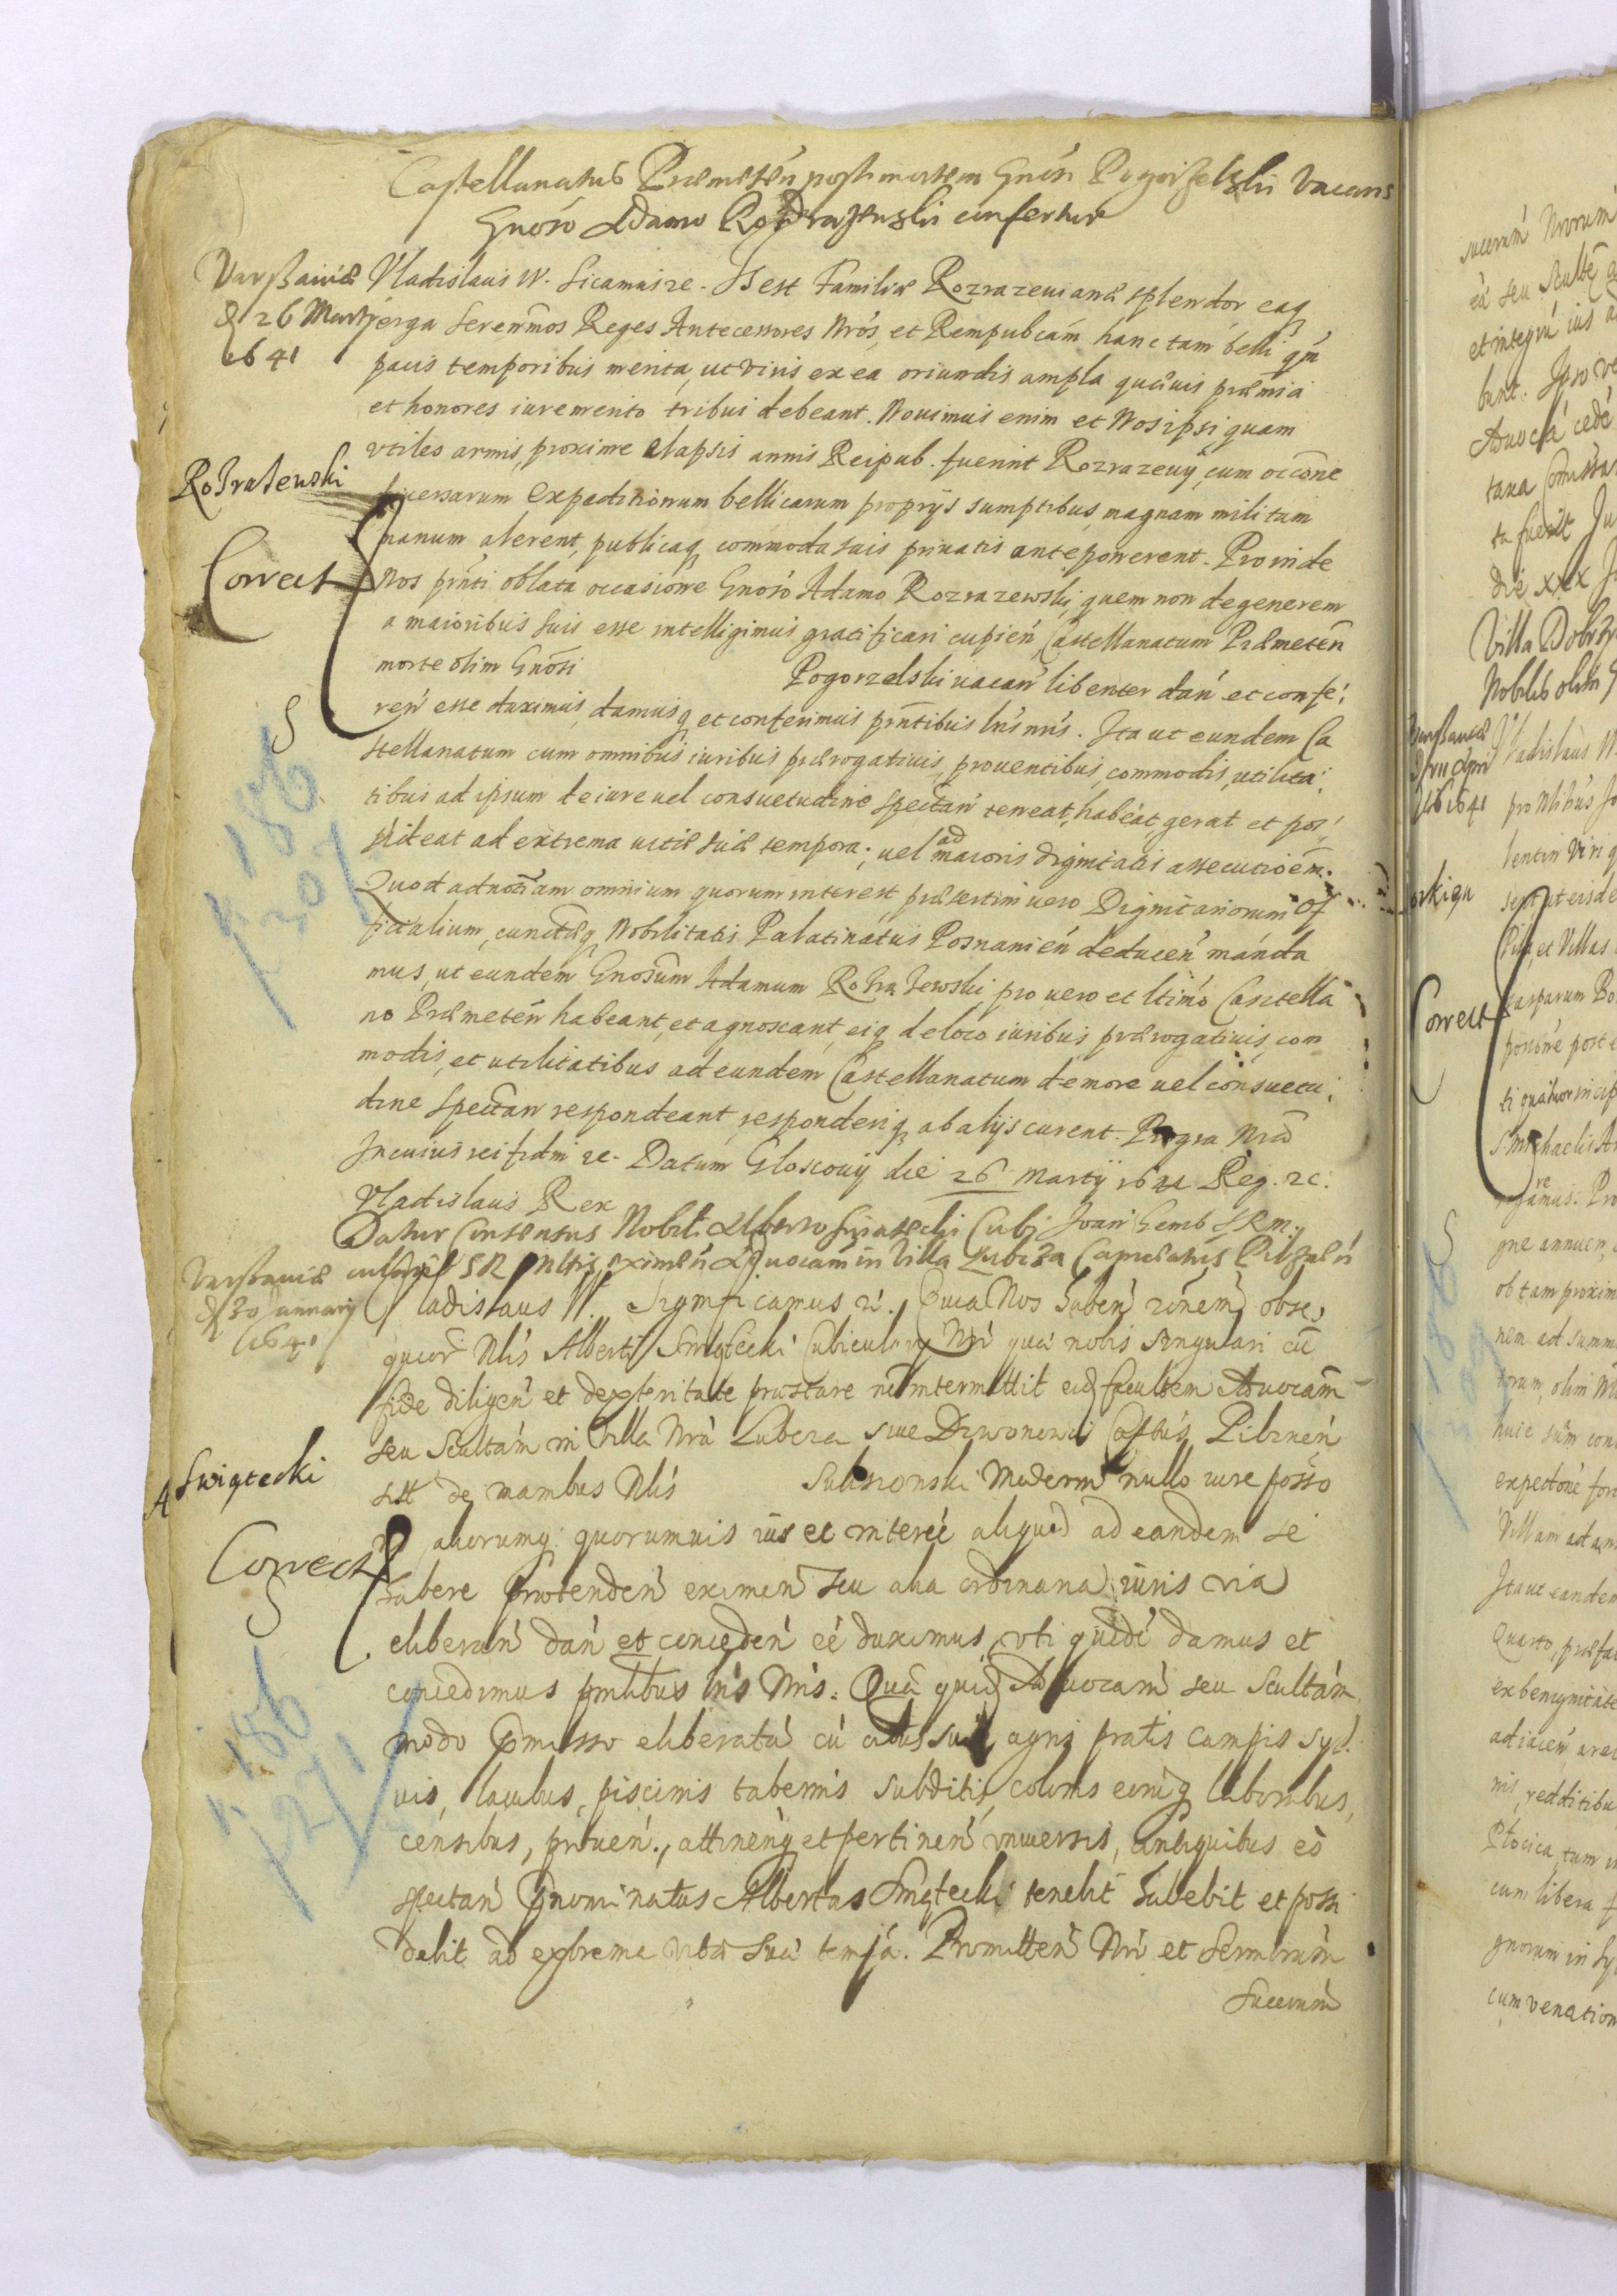 Castellanatus Præmetén post mortem Gnósi Pogorzelski vacans
Gnoso Adamo Rozdrażewski confertur
Varssaviæ
d 26 Martÿ
1641
Vladislaus IV. Sicamus zc. Is est Familiæ Rozrazeuianæ splendor eaq
erga Serenmos Reges Antecessores Nrós, et Rempubcam hanc tam belli qm
pacis temporibus merita, ut viris ex ea oriundis ampla quævis præmia
et honores iure merito tribui debeant. Novimus enim et Nos ipsi quam
vtiles armis, proxime elapsis annis Reipub. fuerint Rozrazeuÿ, cum occóne
Rozrazewski
diuersarum Expeditionum bellicarum proprÿs sumptibus, magnam militum
manum alerent, publicaq commoda suis priuatis anteponerent. Proinde
Correct
Nos pnti oblata occasione Gnoso Adamo Rozrazewski, quem non degenerem
a maioribus suis esse intelligimus gratificari cupień, Castellanatum Præmeteń
morte olim Gnosi Pogorzelski vacań libenter dań et confe,
reń esse duximus, damusq et conferimus pntibus lris nris. Ita ut eundem Ca
stellanatum cum omnibus iuribus prærogatiuis, prouentibus, commodis, utilita,
tibus ad ipsum de iure vel consuetudine spectań teneat, habeat, gerat et pos,
sideat ad extrema vitæ suæ tempora; vel ad maioris dignitatis assecutioem.
Quod ad notiam omnium quorum interest præsertim vero Dignitariorum Of
ficialium, cunctæq Nobilitatis Palatinatus Posnanień deducen manda
mus, ut eundem Gnosum Adamum Rozrazewski pro vero et ltimo Castella
no Præmeteń habeant, et agnoscant, eiq de loco iuribus prærogatiuis, com
modis, et utilitatibus ad eundem Castellanatum de more vel consuetu,
dine spectań respondeant, responderiq ab alÿs curent. Pro gra Nra
In cuius rei fidm zc. Datum Gloscouÿ die 26 Martÿ 1641 Reg. zc.
Vladislaus Rex
Datur Consensus Nobili Alberto Swiatecki Cubi Joan Gemb SRM.
Varssaviæ
d 30 January
1641
SR Mttis eximeń Aduocam in Villa Lubcza Capneatus Pilzneń
Vladislaus IV. Significamus zc. Quia Nos haben rónem obse,
quior Nlis Alberti Swiątecki Cubicularÿ Nri quæ nobis singulari cu
fide diligen et dexteritate præstare nó intermittit eid facultem Aduocam
seu Scultam in Villa Nra Lubcza siue Derwonowa Captus Pilzneń
A Swiątecki
sitt de manibus Nlis Suliszionski Moderni nullo iure posso
Correct
ris aliorumq quorumuis ius et interée aliquod ad eandem se
habere prætendeń eximen seu alia ordinaria iuris via
eliberań dań et concedeń eé duximus, vti quidé damus et
concedimus pntibus lris Nris. Quá quid Aduocam seu Scultam
modo pmisso eliberatá cú oibus suis agris pratis campis syl,
uis, lacubus, piscinis tabernis subditis, colonis eorúq laboribus,
censibus, proueń., attineńq et pertineń vniuersis, antiquibus eó
spectań pnominatus Albertus Swiątecki tenebit habebit et possi
debit ad extrema vitæ suæ tempa. Promitteń Nri et Sermorum
Succrum
n 186
p 207
n 186
p 211
succrum Nrorum
ea seu Sculte
et integrú ius
bunt. Ipso ve
Aduocá cedé
taxa Comissa
ta fuerit Ju
die xxx J
Villa Dobrzy
Nobilis olim
Vladislaus W
pro Nlibus Jo
lentin Viri q
Correct
sept, ut eisde
Pila, et Villas
Gasparum Bo
posióne post e
ti quatuor incip
S Michaelis Ar
gamus. Pro
gne annuen,
ob tam proxim
nem ad summ
torum, olim Ni
huic súm con
expectóne for
Villam ad an
Ita ut eandem
Quarto, præfa
ex benignitate
adiacen, area
nis, redditibu
Plocica, tum in
cum libera f
gnorum in Sy
cum venation